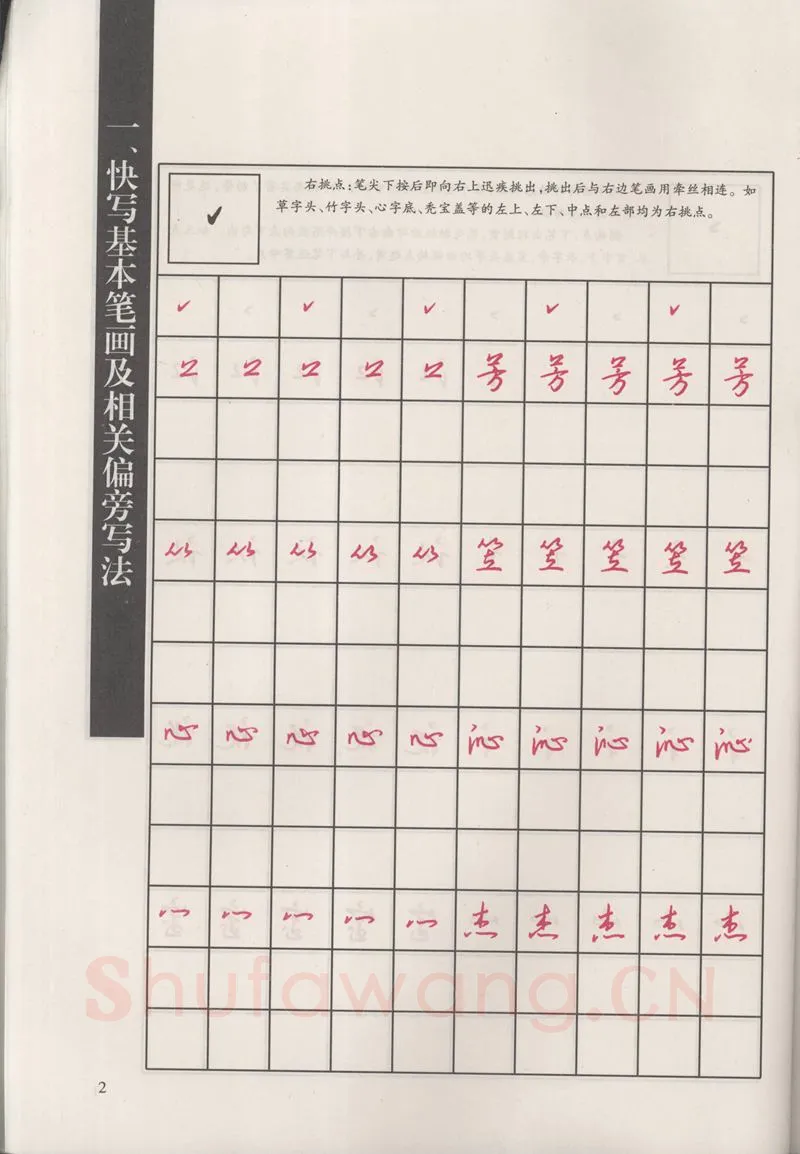 一、快写基本笔画及相关偏旁写法
右挑点:笔尖下按后即向右上迅疾挑出,挑出后与右边笔画用牵丝相连。如
草字头、竹字头、心字底、秃宝盖等的左上、左下、中点和左部均为右挑点。
芳 芳 芳 芳 芳
笠 笠 笠 笠 笠
心 心 心 心 心 沁 沁 沁 沁 沁
杰 杰 杰 杰 杰
Shufawang.CN
2